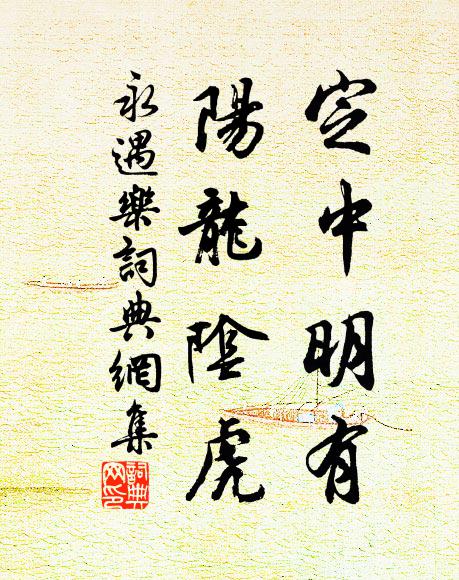 定中明有
陽龍陰虎
永遇樂詞典網集
詞典網印